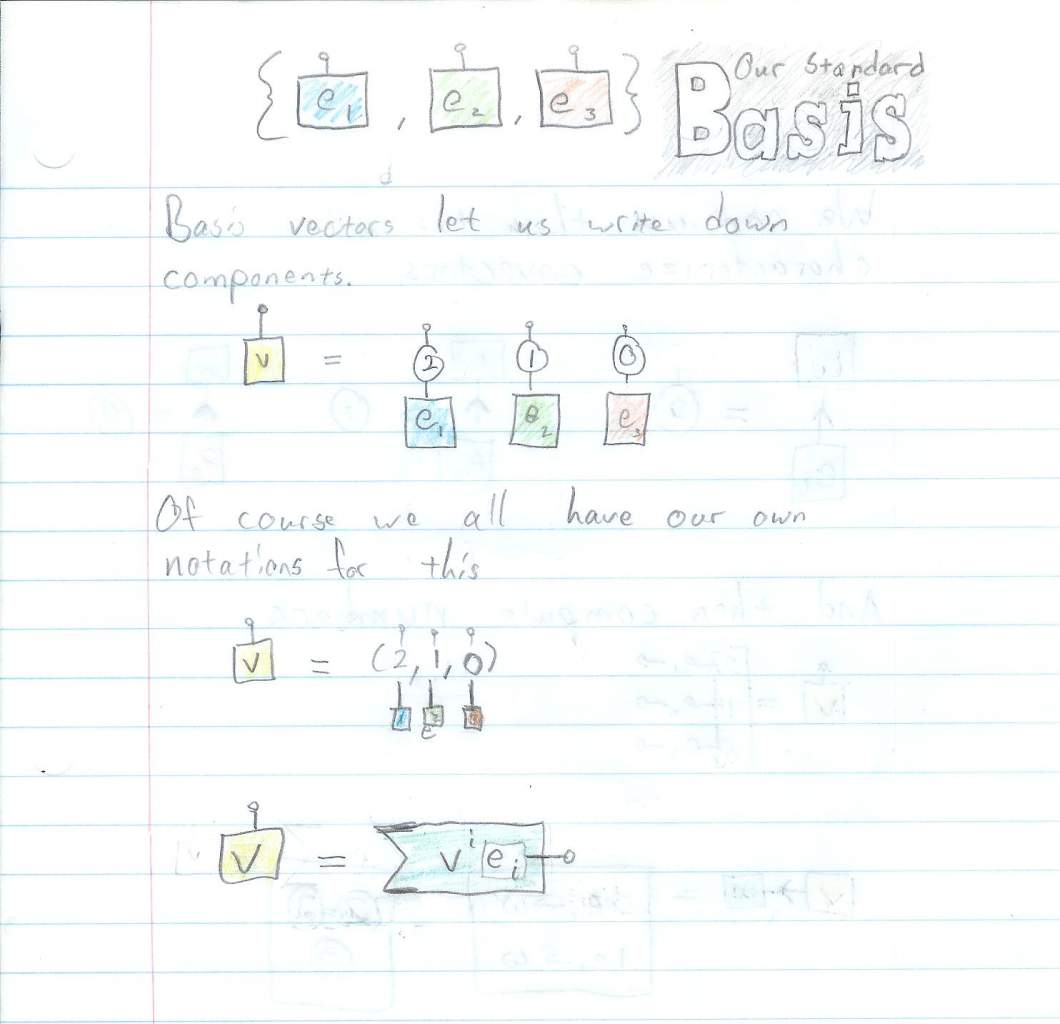 { e₁ , e₂ , e₃ } Our Standard Basis
Basis vectors let us write down
components.
v = 2 1 0
e₁ e₂ e₃
Of course we all have our own
notations for this
v = (2, 1, 0)
e
v = vⁱ eᵢ